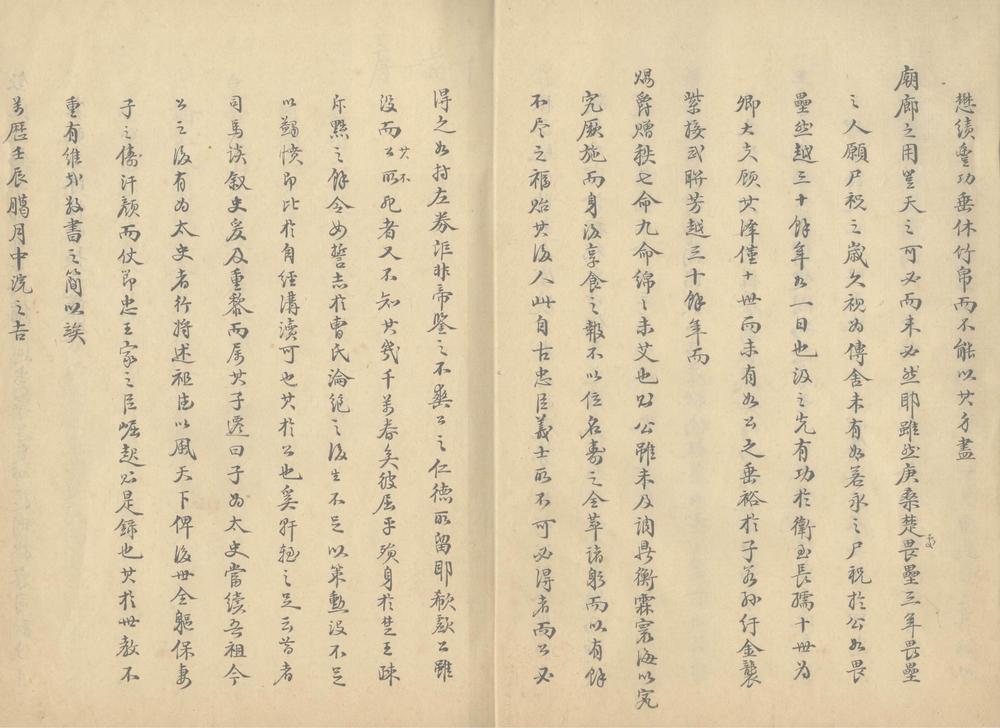 懋績豐功垂休竹帛而不能以其方盡
廟廊之用豈天之可必而未必然耶雖然庚桑楚畏壘三年畏壘
之人願尸祝之歲久視為傳舍未有如若永之尸祝於公如畏
壘然越三十餘年如一日也汲之先有功於衛至長孺十世為
卿大夫顧其澤僅十世而未有如公之垂裕於子若孫行金襲
紫接武聯芳越三十餘年而
賜爵贈秩七命九命綿綿未艾也公雖未及調鼎衡霖寰海以究
究厥施而身後享食之報不以位名壽之全萃諸躬而以有餘
不尽之福貽其後人此自古忠臣義士所不可必得者而公必
得之如持左券詎非帝鑒之不爽公之仁德所留耶歔欷公雖
沒而其不公所死者又不知其幾千萬春矣彼屈平殞身於楚王疎
斥黜之餘令女誓志於曹氏淪絕之後生不足以策勳沒不足
以蠲憤即比於自經溝瀆可也其於公也奚啻之足云昔者
司馬談叙史爰及重黎而屬其子遷曰子為太史當續吾祖今
公之後有為太史者行將述祖德以風天下俾後世全軀保妻
子之儔汗顏而仗節忠王家之臣崛起公是錄也其於世教不
重有維哉敬書之簡以俟
萬歷壬辰臈月中浣之吉